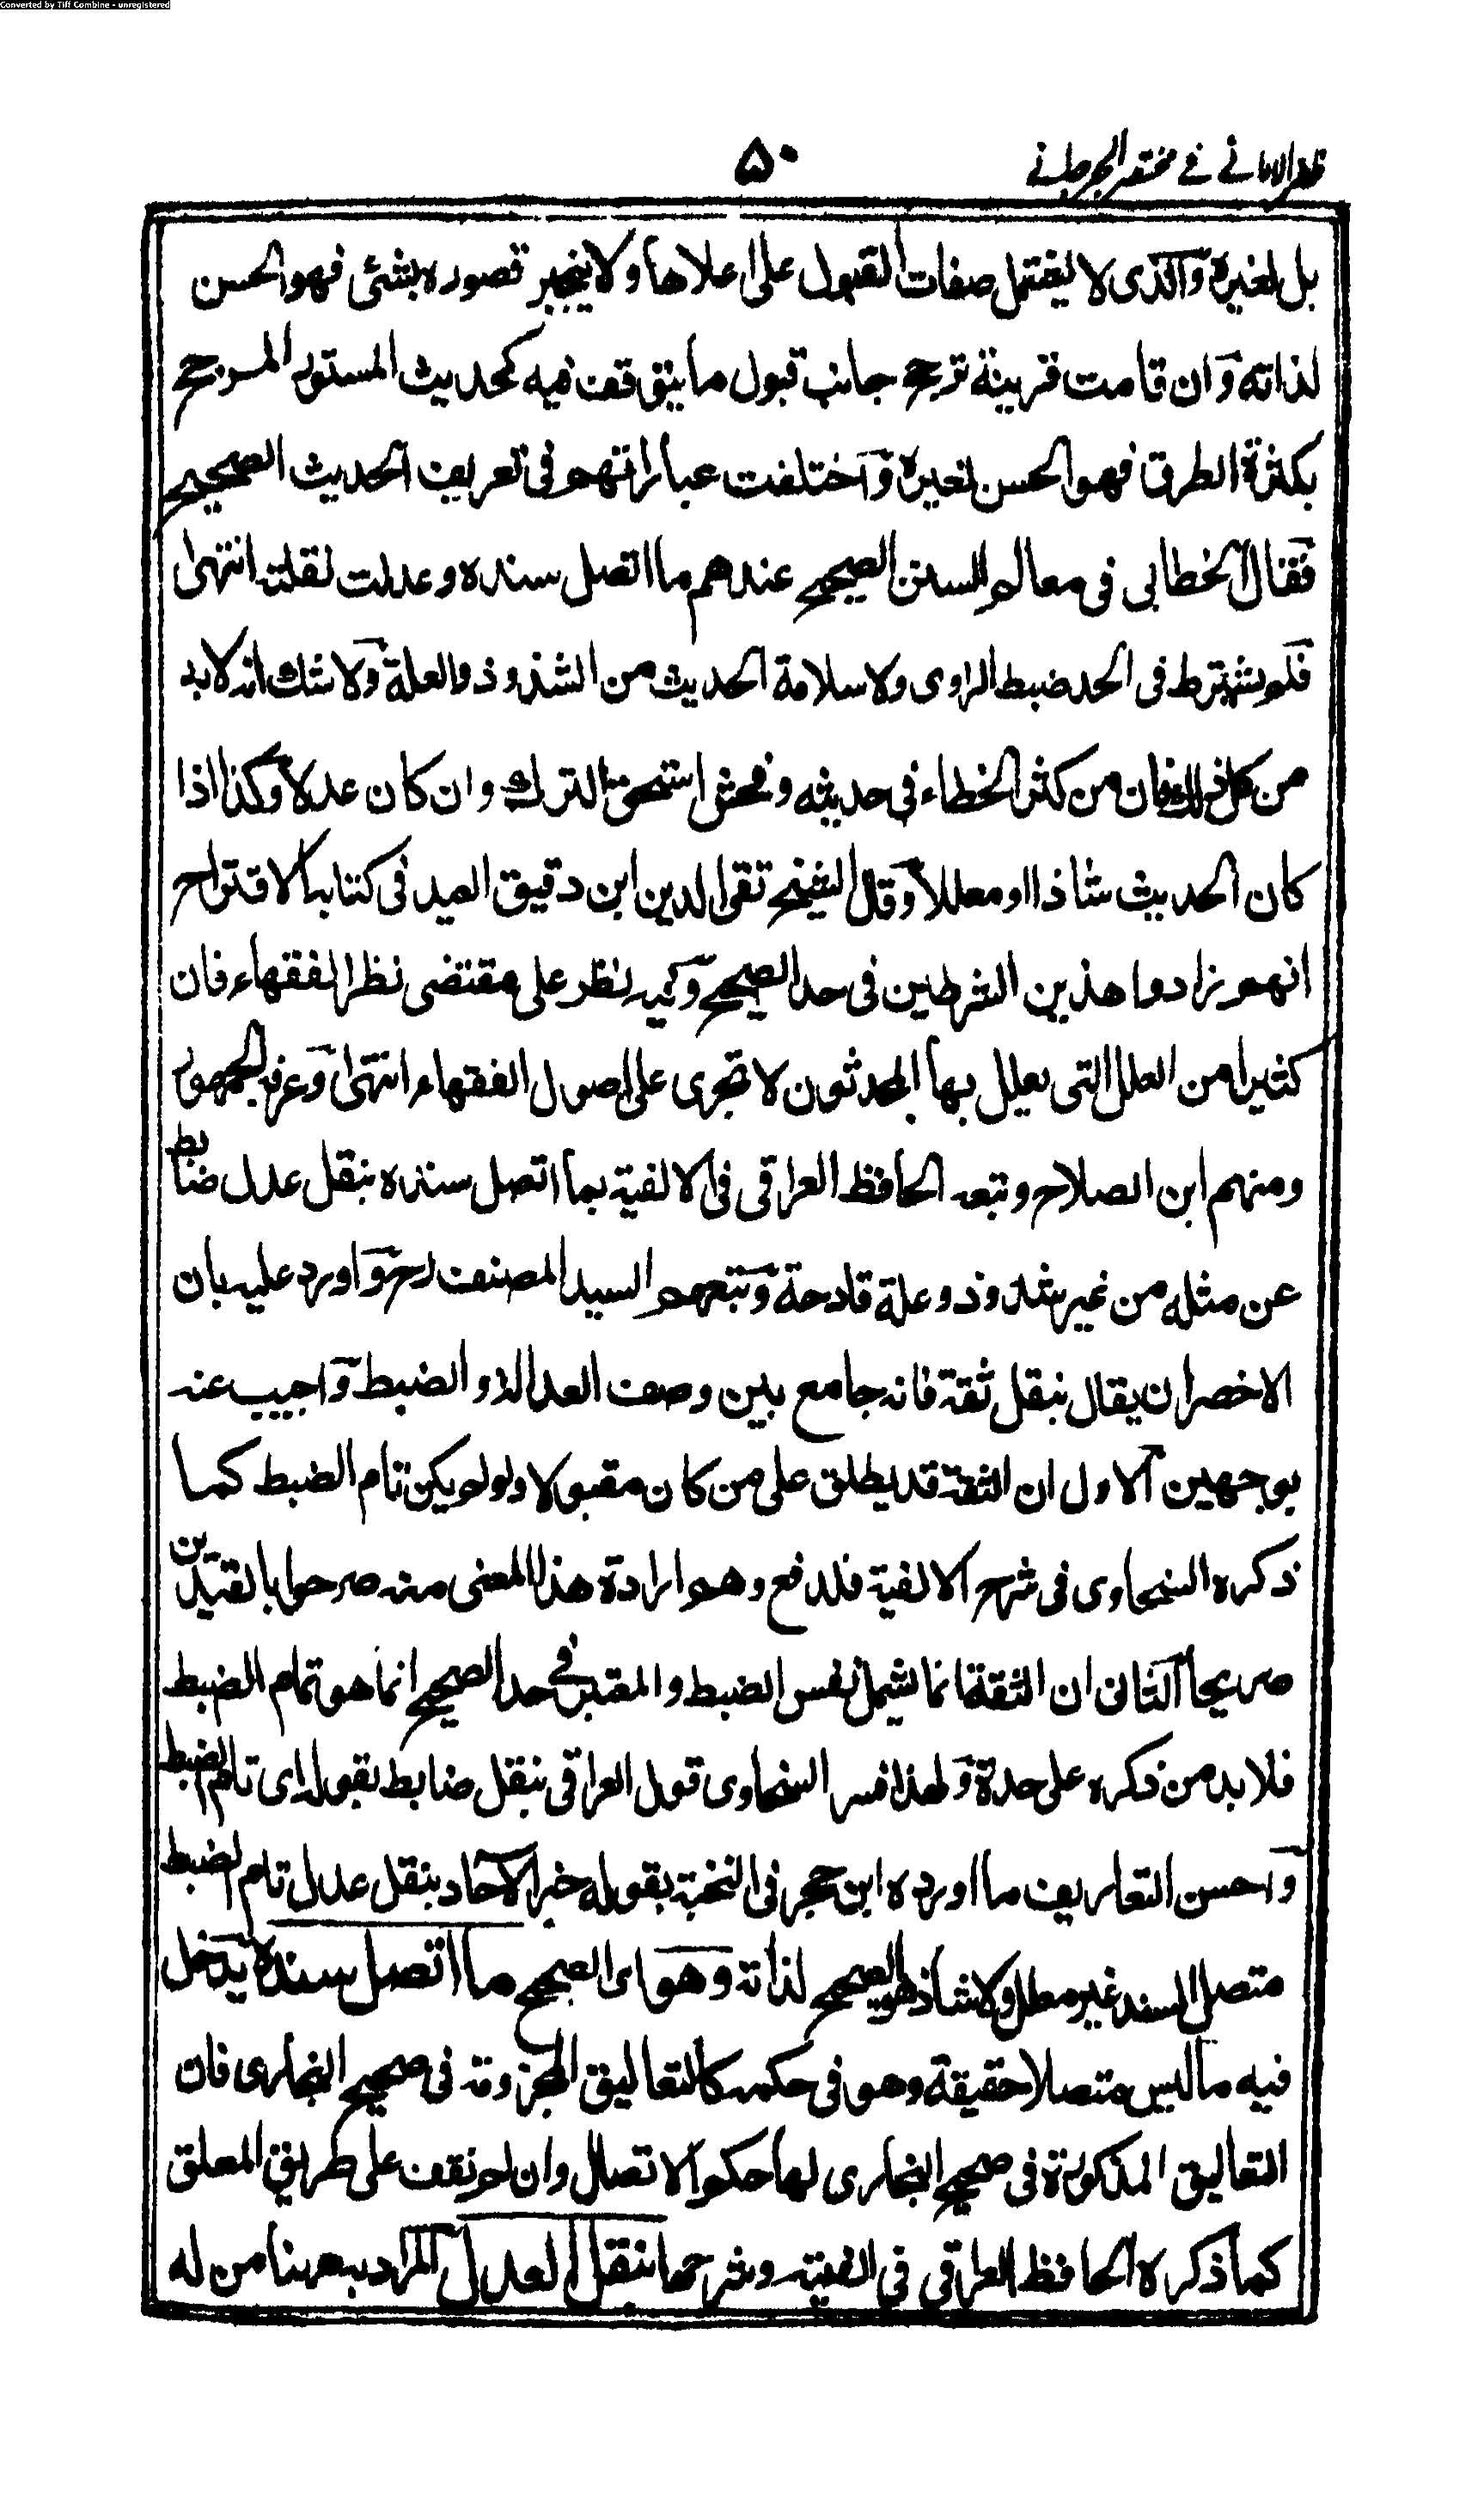 Converted by Tiff Combine - unregistered
ظفر الامانی فی مختصر الجرجانی
۵۰
بل لغیرہ وآلذی لا یشتمل صفات القبول علی اعلاھا ولا ینجبر قصورہ بشئی فھو الحسن
لذاتہ وٓان قامت قرینة ترجح جانب قبول ما یتوقف فیہ کحدیث المستور المرجح
بکثرة الطرق فھو الحسن لغیرہ وٓاختلفت عباراتھم فی تعریف الحدیث الصحیح
فقال الخطابی فی معالم السنن الصحیح عندھم ما اتصل سندہ وعدلت نقلتہ انتھی
فلم یشترط فی الحد ضبط الراوی ولا سلامة الحدیث من الشذوذ والعلة وٓلا شک انہ لا بد
من کل ذلک فان من کثر الخطاء فی حدیثہ وفحش استحق الترک وان کان عدلا وٓکذا اذا
کان الحدیث شاذا او معللا وٓقال الشیخ تقی الدین ابن دقیق العید فی کتابہ الاقتراح
انھم زادوا ھذین الشرطین فی حد الصحیح وٓفیہ نظر علی مقتضی نظر الفقھاء فان
کثیرا من العلل التی یعلل بھا المحدثون لا تجری علی اصول الفقھاء انتھی وٓعرفہ الجمھور
ومنھم ابن الصلاح وتبعہ الحافظ العراقی فی الالفیة بما اتصل سندہ بنقل عدل ضابط
عن مثلہ من غیر شذوذ وعلة قادحة وٓتبعھم السید المصنف رح وٓاورد علیہ بان
الاخصر ان یقال بنقل ثقة فانہ جامع بین وصف العدالة والضبط وٓاجیب عنہ
بوجھین آلاول ان الثقة قد یطلق علی من کان مقبولا ولو لم یکن تام الضبط کما
ذکرہ السخاوی فی شرح الالفیة فلدفع وھم ارادة ھذا المعنی منہ صرحوا بالقیدین
صریحا آلثانی ان الثقة انما یشمل نفس الضبط والمعتبر فی حد الصحیح انما ھو تمام الضبط
فلا بد من ذکرہ علی حدة وٓلھذا فسر السخاوی قول العراقی بنقل ضابط بقولہ ای تام الضبط
وٓاحسن التعاریف ما اوردہ ابن حجر فی النخبة بقولہ خبر الآحاد بنقل عدل تام الضبط
متصل السند غیر معلل ولا شاذ ھو الصحیح لذاتہ وھو ای الصحیح ما اتصل سندہ یدخل
فیہ ما لیس متصلا حقیقة وھو فی حکمہ کالتعالیق المجزومة فی صحیح البخاری فان
التعالیق المذکورة فی صحیح البخاری لھا حکم الاتصال وان لم نقف علی طریق المعلق
کما ذکرہ الحافظ العراقی فی الفیتہ وشرحھا بنقل العدل المراد بہ ھھنا من لہ